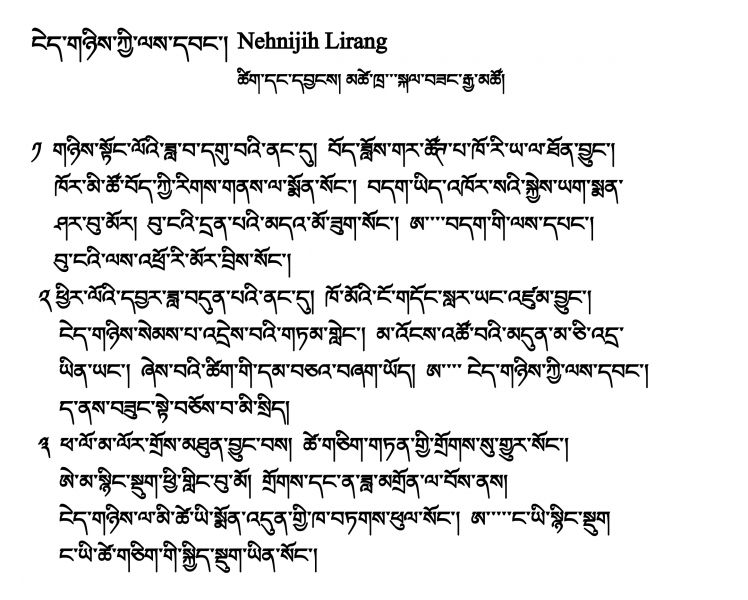 ངེད་གཉིས་ཀྱི་ལས་དབང་། Nehnijih Lirang
ཚིག་དང་དབྱངས། མཚོ་ཁྲ་་་སྐལ་བཟང་རྒྱ་མཚོ།
༡ གཉིས་སྟོང་ལོའི་ཟླ་བ་དགུ་བའི་ནང་དུ། བོད་ཟློས་གར་ཚོན་པ་ཁོ་རི་ཡ་ལ་ཐོན་བྱུང་།
ཁོར་མི་ཚོ་བོད་ཀྱི་རིགས་གནས་ལ་སྨོན་སོང་། བདག་ཡིད་འཁོར་སའི་སྐྱེས་ཡག་སྨན་
ཤར་བུ་མོར། བུ་ངའི་དྲན་པའི་མདའ་མོ་ཟུག་སོང་། ཨ་་་་བདག་གི་ལས་དཔང་།
བུ་ངའི་ལས་འཕྲོ་རི་མོར་བྲིས་སོང་།
༢ ཕྱིར་ལོའི་དབྱར་ཟླ་བདུན་པའི་ནང་དུ། ཁོ་མོའི་ངོ་གདོང་སླར་ཡང་འཛུམ་བྱུང་།
ངེད་གཉིས་སེམས་པ་འདྲེས་བའི་གཏམ་གླེང་། མ་འོངས་འཚོ་བའི་མདུན་མ་ཅི་འདྲ་
ཡིན་ཡང་། ཞེས་བའི་ཚིག་གི་དམ་བཅའ་བཞག་ཡོད། ཨ་་་་ ངེད་གཉིས་ཀྱི་ལས་དབང་།
ད་ནས་བཟུང་སྟེ་བཅོས་བ་མི་སྲིད།
༣ ཕ་ལོ་མ་ལོར་གྲོས་མཐུན་བྱུང་བས། ཚེ་གཅིག་གཏན་གྱི་གྲོགས་སུ་གྱུར་སོང་།
ཨེ་མ་སྙིང་སྡུག་ཕྱི་གླིང་བུ་མོ། གྲོགས་དང་ན་ཟླ་མགྲོན་ལ་བོས་ནས།
ངེད་གཉིས་ལ་མི་ཚེ་ཡི་སྨོན་འདུན་གྱི་ཁ་བཏགས་ཕུལ་སོང་། ཨ་་་་་ང་ཡི་སྙིང་སྡུག
ང་ཡི་ཚེ་གཅིག་གི་སྐྱིད་སྡུག་ཡིན་སོང་།